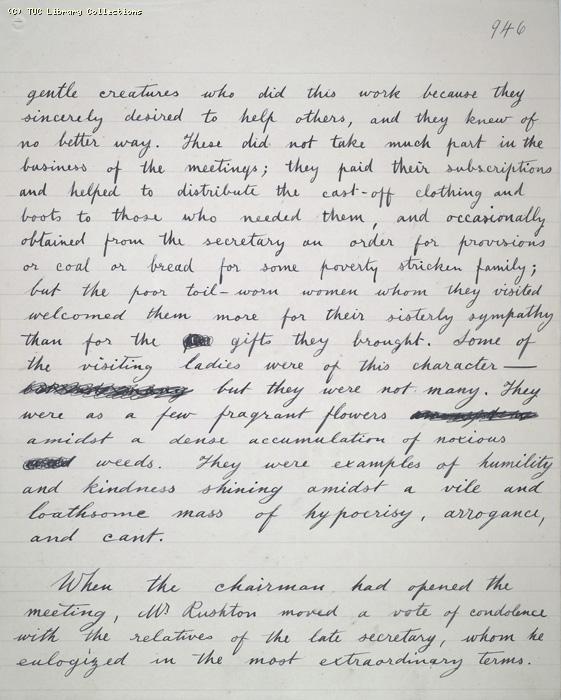 (C) TUC Library Collections
946
gentle creatures who did this work because they
sincerely desired to help others, and they knew of
no better way. These did not take much part in the
business of the meetings; they paid their subscriptions
and helped to distribute the cast-off clothing and
boots to those who needed them, and occasionally
obtained from the secretary an order for provisions
or coal or bread for some poverty stricken family;
but the poor toil-worn women whom they visited
welcomed them more for their sisterly sympathy
than for the gifts they brought. Some of
the visiting ladies were of this character—
but they were not many. They
were as a few fragrant flowers
amidst a dense accumulation of noxious
weeds. They were examples of humility
and kindness shining amidst a vile and
loathsome mass of hypocrisy, arrogance,
and cant.
When the chairman had opened the
meeting, Mr Rushton moved a vote of condolence
with the relatives of the late secretary, whom he
eulogized in the most extraordinary terms.